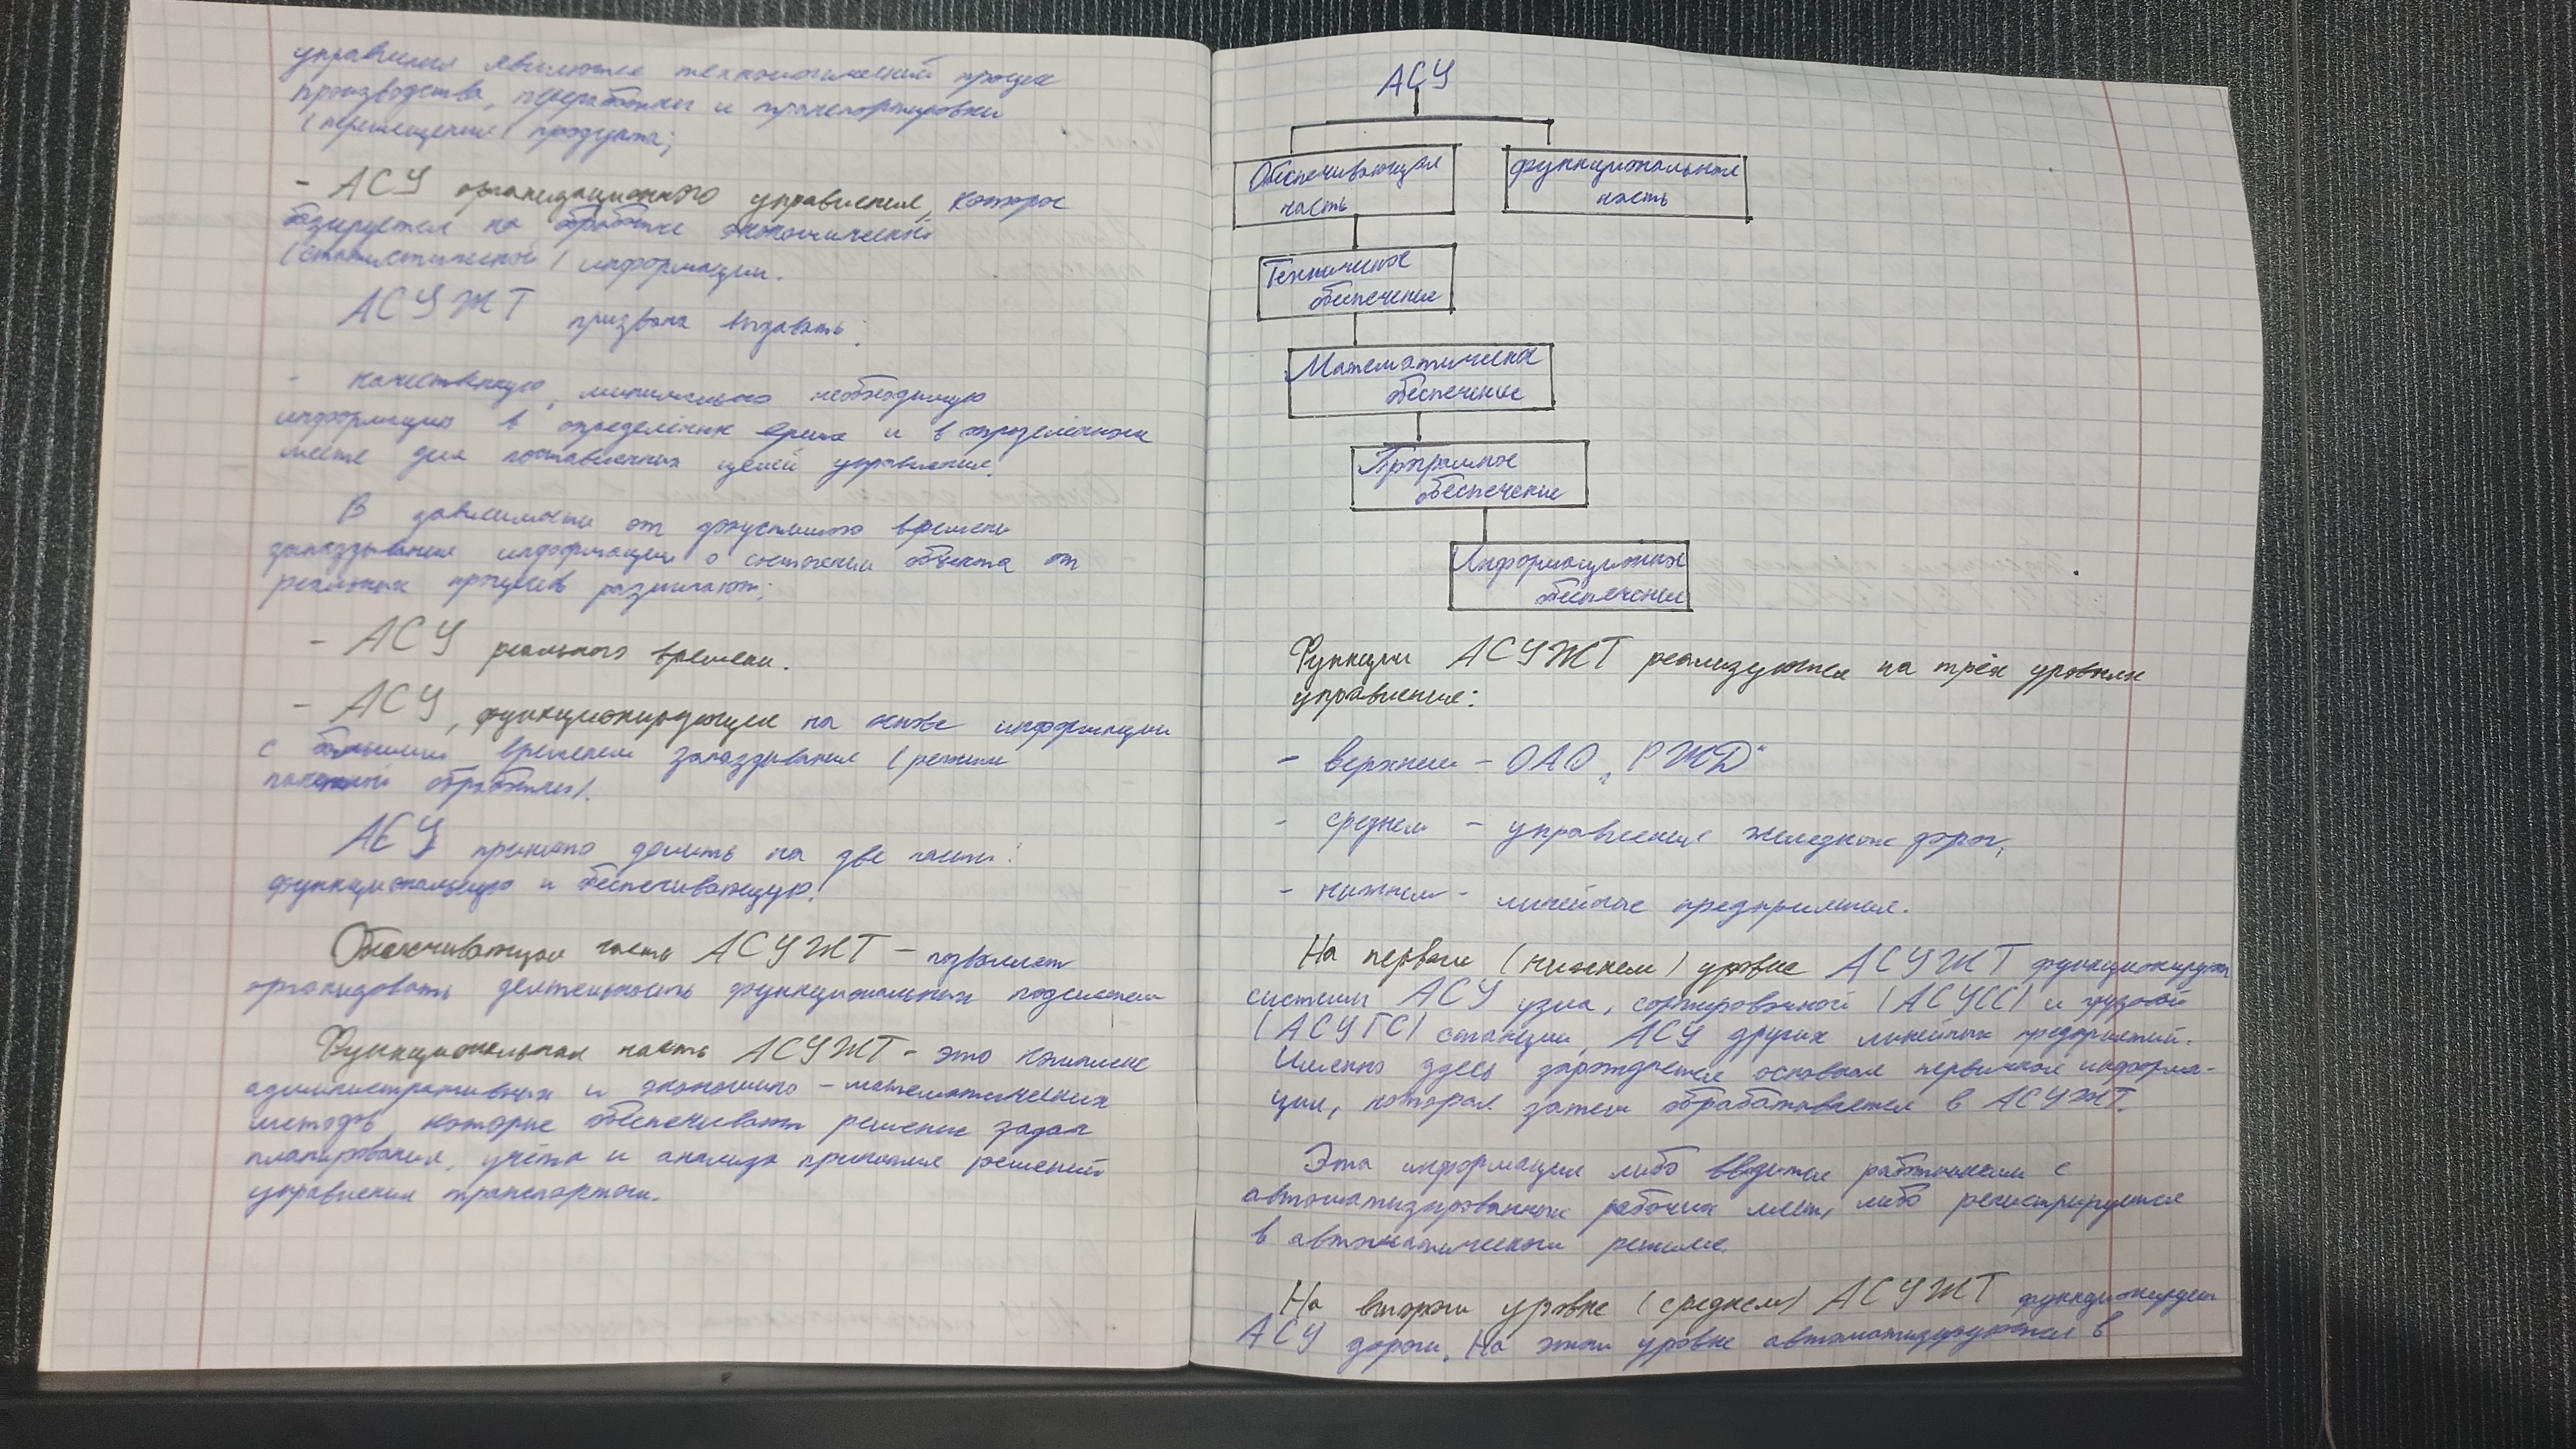 управления являются технологический процесс
производства, переработки и транспортировки
(перемещения) продукта;
- АСУ организационного управления, которое
базируется на обработке экономической
(статистической) информации.
АСУЖТ призвана выдавать:
- качественную, минимально необходимую
информацию в определённое время и в определённом
месте для поставленных целей управления.
В зависимости от допустимого времени
запаздывания информации о состоянии объекта от
реальных процессов различают:
- АСУ реального времени.
- АСУ, функционирующие на основе информации
с большим временем запаздывания (режим
пакетной обработки).
АСУ принято делить на две части:
функциональную и обеспечивающую.
Обеспечивающая часть АСУЖТ - позволяет
организовать деятельность функциональных подсистем
Функциональная часть АСУЖТ - это комплекс
административных и экономико-математических
методов, которые обеспечивают решение задач
планирования, учёта и анализа принятия решений
управления транспортом.
АСУ
Обеспечивающая
часть
функциональная
часть
Техническое
обеспечение
Математическое
обеспечение
Програмное
обеспечение
Информационное
обеспечение
Функции АСУЖТ реализуются на трёх уровнях
управления:
- верхнем - ОАО „РЖД“
- среднем - управления железных дорог;
- нижнем - линейные предприятия.
На первом (нижнем) уровне АСУЖТ функционируют
системы АСУ узла, сортировочной (АСУСС) и грузовой
(АСУГС) станции, АСУ других линейных предприятий.
Именно здесь зарождается основная первичная информа-
ция, которая затем обрабатывается в АСУЖТ.
Эта информация либо вводится работником с
автоматизированных рабочих мест, либо регистрируется
в автоматическом режиме.
На втором уровне (среднем) АСУЖТ функционирует
АСУ дороги. На этом уровне автоматизируются в